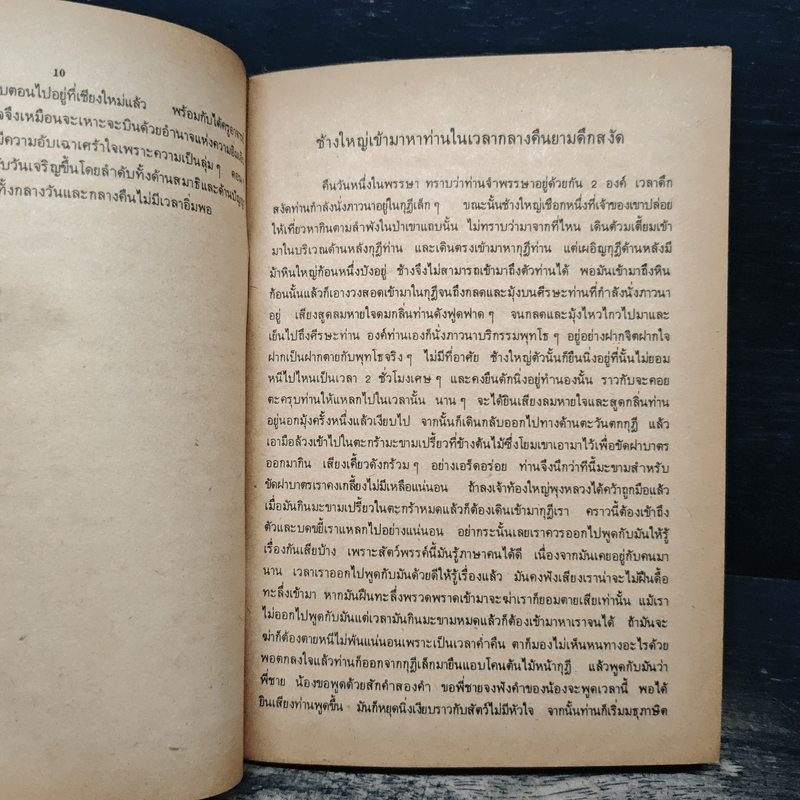 10
บตอนไปอยู่ที่เชียงใหม่แล้ว พร้อมกับได้ครูอาจารย์
จจึงเหมือนจะเหาะจะบินด้วยอำนาจแห่งความ
มีความอับเฉาเศร้าใจเพราะความเป็นลุ่ม ๆ ดอน ๆ
บวันเจริญขึ้นโดยลำดับทั้งด้านสมาธิและด้านปัญญา
ทั้งกลางวันและกลางคืนไม่มีเวลาอิ่มพอ
ช้างใหญ่เข้ามาหาท่านในเวลากลางคืนยามดึกสงัด
คืนวันหนึ่งในพรรษา ทราบว่าท่านจำพรรษาอยู่ด้วยกัน 2 องค์ เวลาดึก
สงัดท่านกำลังนั่งภาวนาอยู่ในกุฎีเล็ก ๆ ขณะนั้นช้างใหญ่เชือกหนึ่งที่เจ้าของเขาปล่อย
ให้เที่ยวหากินตามลำพังในป่าเขาแถบนั้น ไม่ทราบว่ามาจากที่ไหน เดินต้วมเตี้ยมเข้า
มาในบริเวณด้านหลังกุฎีท่าน และเดินตรงเข้ามาหากุฎีท่าน แต่เผอิญกุฎีด้านหลังมี
ม้าหินใหญ่ก้อนหนึ่งบังอยู่ ช้างจึงไม่สามารถเข้ามาถึงตัวท่านได้ พอมันเข้ามาถึงหิน
ก้อนนั้นแล้วก็เอางวงสอดเข้ามาในกุฎีจนถึงกลดและมุ้งบนศีรษะท่านที่กำลังนั่งภาวนา
อยู่ เสียงสูดลมหายใจดมกลิ่นท่านดังฟูดฟาด ๆ จนกลดและมุ้งไหวไกวไปมาและ
เย็นไปถึงศีรษะท่าน องค์ท่านเองก็นั่งภาวนาบริกรรมพุทโธ ๆ อยู่อย่างฝากจิตฝากใจ
ฝากเป็นฝากตายกับพุทโธจริง ๆ ไม่มีที่อาศัย ช้างใหญ่ตัวนั้นก็ยืนนิ่งอยู่ที่นั้นไม่ยอม
หนีไปไหนเป็นเวลา 2 ชั่วโมงเศษ ๆ และคงยืนดักนิ่งอยู่ทำนองนั้น ราวกับจะคอย
ตะครุบท่านให้แหลกไปในเวลานั้น นาน ๆ จะได้ยินเสียงลมหายใจและสูดกลิ่นท่าน
อยู่นอกมุ้งครั้งหนึ่งแล้วเงียบไป จากนั้นก็เดินกลับออกไปทางด้านตะวันตกกุฎี แล้ว
เอามือล้วงเข้าไปในตะกร้ามะขามเปรี้ยวที่ข้างต้นไม้ซึ่งโยมเขาเอามาไว้เพื่อขัดฝาบาตร
ออกมากิน เสียงเคี้ยวดังกร้วม ๆ อย่างเอร็ดอร่อย ท่านจึงนึกว่าทีนี้มะขามสำหรับ
ขัดฝาบาตรเราคงเกลี้ยงไม่มีเหลือแน่นอน ถ้าลงเจ้าท้องใหญ่พุงหลวงได้คว้าถูกมือแล้ว
เมื่อมันกินมะขามเปรี้ยวในตะกร้าหมดแล้วก็ต้องเดินเข้ามากุฎีเรา คราวนี้ต้องเข้าถึง
ตัวและบดขยี้เราแหลกไปอย่างแน่นอน อย่ากระนั้นเลยเราควรออกไปพูดกับมันให้รู้
เรื่องกันเสียบ้าง เพราะสัตว์พรรค์นี้มันรู้ภาษาคนได้ดี เนื่องจากมันเคยอยู่กับคนมา
นาน เวลาเราออกไปพูดกับมันด้วยดีให้รู้เรื่องแล้ว มันคงฟังเสียงเราน่าจะไม่ฝืนดื้อ
ทะลึ่งเข้ามา หากมันฝืนทะลึ่งพรวดพราดเข้ามาจะฆ่าเราก็ยอมตายเสียเท่านั้น แม้เรา
ไม่ออกไปพูดกับมันแต่เวลามันกินมะขามหมดแล้วก็ต้องเข้ามาหาเราจนได้ ถ้ามันจะ
ฆ่าก็ต้องตายหนีไม่พ้นแน่นอนเพราะเป็นเวลาค่ำคืน ตาก็มองไม่เห็นหนทางอะไรด้วย
พอตกลงใจแล้วท่านก็ออกจากกุฎีเล็กมายืนแอบโคนต้นไม้หน้ากุฎี แล้วพูดกับมันว่า
พี่ชาย น้องขอพูดด้วยสักคำสองคำ ขอพี่ชายจงฟังคำของน้องจะพูดเวลานี้ พอได้
ยินเสียงท่านพูดขึ้น มันก็หยุดนิ่งเงียบราวกับสัตว์ไม่มีหัวใจ จากนั้นท่านก็เริ่มมธุภาษิต